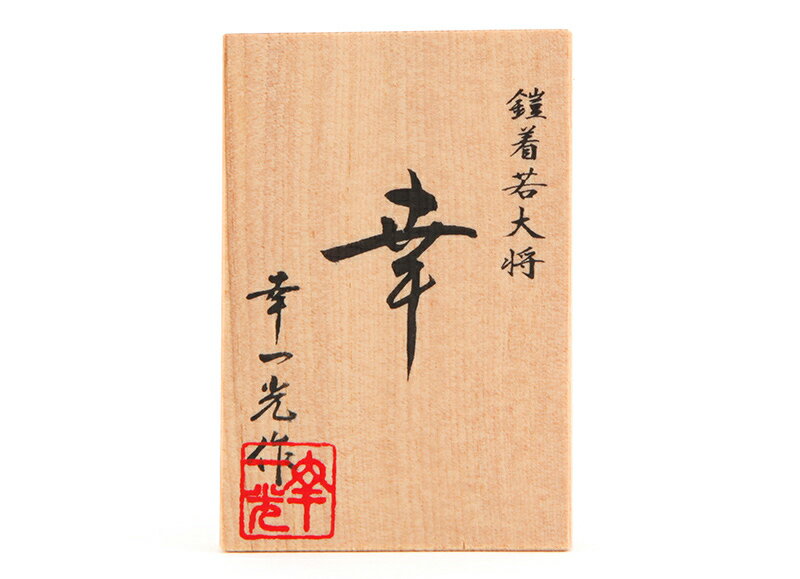 鎧着若大将
幸
幸一光作
幸一光